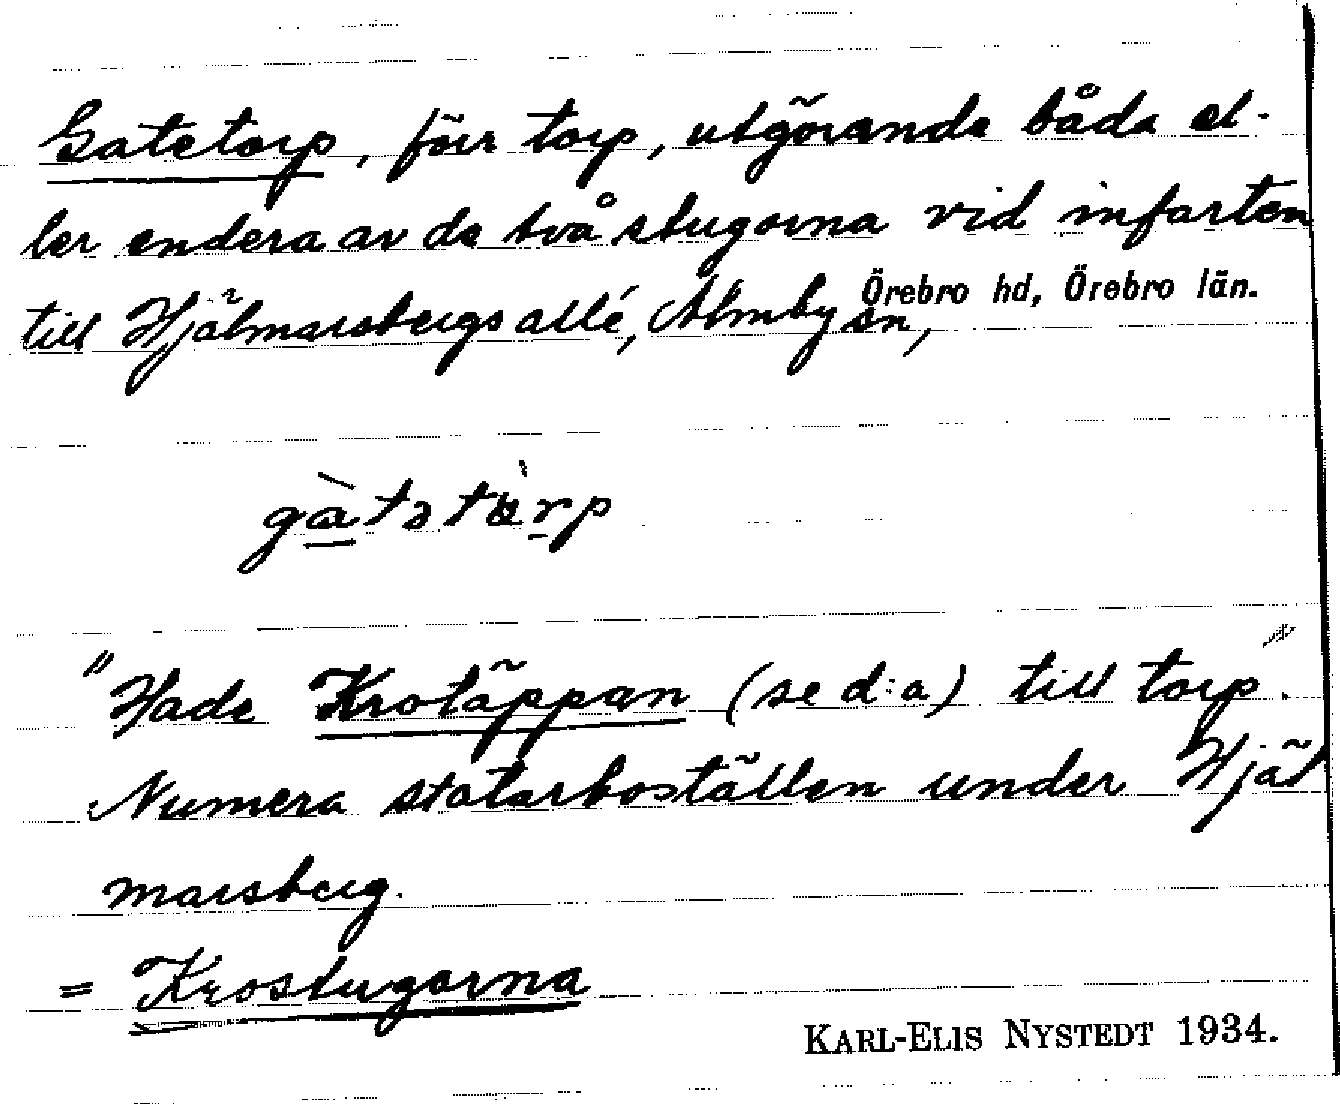 Gatetorp, förr torp, utgörande båda el-
ler endera av de två stugorna vid infarten
till Hjälmarsbergs allé, Almby sn, Örebro hd, Örebro län.
gàtətὰrp
"Hade Krotäppan (se d:a) till torp".
Numera statarboställen under Hjäl
marsberg.
= Krostugorna
KARL-ELIS NYSTEDT 1934.